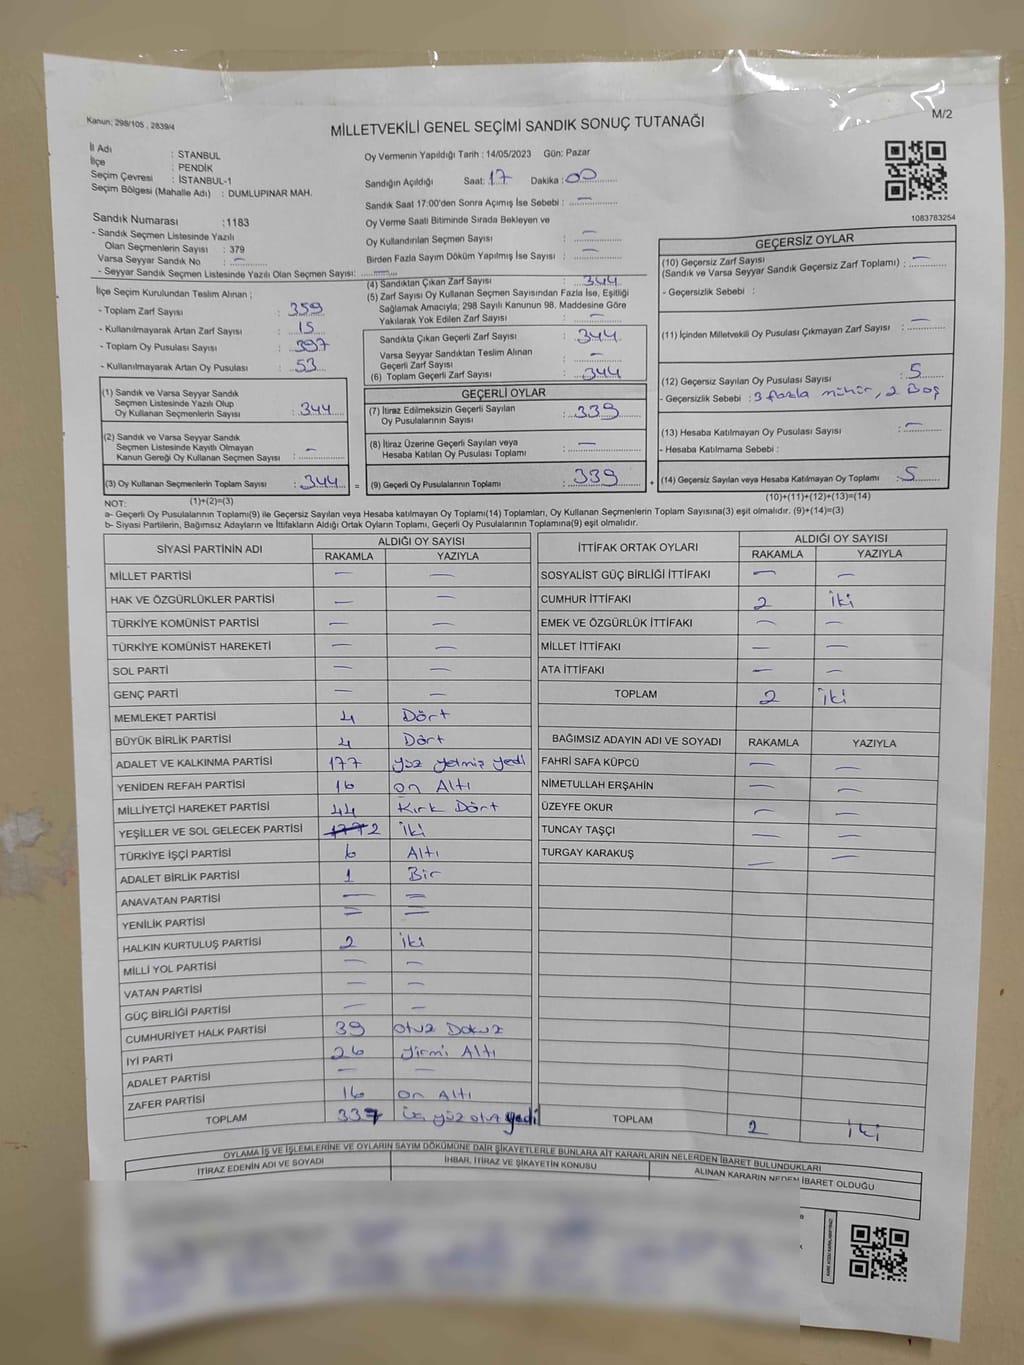 Kanun; 298/105 , 2839/4
MİLLETVEKİLİ GENEL SEÇİMİ SANDIK SONUÇ TUTANAĞI
M/2
İl Adı : STANBUL
İlçe : PENDİK
Seçim Çevresi : İSTANBUL-1
Seçim Bölgesi (Mahalle Adı) : DUMLUPINAR MAH.
Sandık Numarası :1183
- Sandık Seçmen Listesinde Yazılı
Olan Seçmenlerin Sayısı : 379
Varsa Seyyar Sandık No : –
- Seyyar Sandık Seçmen Listesinde Yazılı Olan Seçmen Sayısı: –
Oy Vermenin Yapıldığı Tarih : 14/05/2023 Gün: Pazar
Sandığın Açıldığı Saat: 17 Dakika : 00
Sandık Saat 17:00'den Sonra Açımış İse Sebebi : –
Oy Verme Saati Bitiminde Sırada Bekleyen ve
Oy Kullandırılan Seçmen Sayısı : –
Birden Fazla Sayım Döküm Yapılmış İse Sayısı : –
1083783254
İlçe Seçim Kurulundan Teslim Alınan ;
- Toplam Zarf Sayısı : 359
- Kullanılmayarak Artan Zarf Sayısı : 15
- Toplam Oy Pusulası Sayısı : 397
- Kullanılmayarak Artan Oy Pusulası : 53
(1) Sandık ve Varsa Seyyar Sandık
Seçmen Listesinde Yazılı Olup
Oy Kullanan Seçmenlerin Sayısı : 344
(2) Sandık ve Varsa Seyyar Sandık
Seçmen Listesinde Kayıtlı Olmayan
Kanun Gereği Oy Kullanan Seçmen Sayısı : –
(3) Oy Kullanan Seçmenlerin Toplam Sayısı : 344 =
(4) Sandıktan Çıkan Zarf Sayısı : 344
(5) Zarf Sayısı Oy Kullanan Seçmen Sayısından Fazla İse, Eşitliği
Sağlamak Amacıyla; 298 Sayılı Kanunun 98. Maddesine Göre
Yakılarak Yok Edilen Zarf Sayısı : –
Sandıkta Çıkan Geçerli Zarf Sayısı : 344
Varsa Seyyar Sandıktan Teslim Alınan
Geçerli Zarf Sayısı : –
(6) Toplam Geçerli Zarf Sayısı : 344
GEÇERLİ OYLAR
(7) İtiraz Edilmeksizin Geçerli Sayılan
Oy Pusulalarının Sayısı : 339
(8) İtiraz Üzerine Geçerli Sayılan veya
Hesaba Katılan Oy Pusulası Toplamı : –
(9) Geçerli Oy Pusulalarının Toplamı : 339 +
GEÇERSİZ OYLAR
(10) Geçersiz Zarf Sayısı
(Sandık ve Varsa Seyyar Sandık Geçersiz Zarf Toplamı) : –
- Geçersizlik Sebebi :
(11) İçinden Milletvekili Oy Pusulası Çıkmayan Zarf Sayısı : –
(12) Geçersiz Sayılan Oy Pusulası Sayısı : 5
- Geçersizlik Sebebi : 3 fazla mühür, 2 Boş
(13) Hesaba Katılmayan Oy Pusulası Sayısı : –
- Hesaba Katılmama Sebebi :
(14) Geçersiz Sayılan veya Hesaba Katılmayan Oy Toplamı : 5
NOT: (1)+(2)=(3) (10)+(11)+(12)+(13)=(14)
a- Geçerli Oy Pusulalarının Toplamı(9) ile Geçersiz Sayılan veya Hesaba katılmayan Oy Toplamı(14) Toplamları, Oy Kullanan Seçmenlerin Toplam Sayısına(3) eşit olmalıdır. (9)+(14)=(3)
b- Siyasi Partilerin, Bağımsız Adayların ve İttifakların Aldığı Ortak Oyların Toplamı, Geçerli Oy Pusulalarının Toplamına(9) eşit olmalıdır.
SİYASİ PARTİNİN ADI ALDIĞI OY SAYISI
RAKAMLA YAZIYLA
MİLLET PARTİSİ – –
HAK VE ÖZGÜRLÜKLER PARTİSİ – –
TÜRKİYE KOMÜNİST PARTİSİ – –
TÜRKİYE KOMÜNİST HAREKETİ – –
SOL PARTİ – –
GENÇ PARTİ – –
MEMLEKET PARTİSİ 4 Dört
BÜYÜK BİRLİK PARTİSİ 4 Dört
ADALET VE KALKINMA PARTİSİ 177 yüz yetmiş yedi
YENİDEN REFAH PARTİSİ 16 on Altı
MİLLİYETÇİ HAREKET PARTİSİ 44 Kırk Dört
YEŞİLLER VE SOL GELECEK PARTİSİ 2 iki
TÜRKİYE İŞÇİ PARTİSİ 6 Altı
ADALET BİRLİK PARTİSİ 1 Bir
ANAVATAN PARTİSİ – –
YENİLİK PARTİSİ – –
HALKIN KURTULUŞ PARTİSİ 2 iki
MİLLİ YOL PARTİSİ – –
VATAN PARTİSİ – –
GÜÇ BİRLİĞİ PARTİSİ – –
CUMHURİYET HALK PARTİSİ 39 otuz Dokuz
İYİ PARTİ 26 yirmi Altı
ADALET PARTİSİ – –
ZAFER PARTİSİ 16 on Altı
TOPLAM 337 üç yüz otuz yedi
İTTİFAK ORTAK OYLARI ALDIĞI OY SAYISI
RAKAMLA YAZIYLA
SOSYALİST GÜÇ BİRLİĞİ İTTİFAKI – –
CUMHUR İTTİFAKI 2 iki
EMEK VE ÖZGÜRLÜK İTTİFAKI – –
MİLLET İTTİFAKI – –
ATA İTTİFAKI – –
TOPLAM 2 iki
BAĞIMSIZ ADAYIN ADI VE SOYADI RAKAMLA YAZIYLA
FAHRİ SAFA KÜPCÜ – –
NİMETULLAH ERŞAHİN – –
ÜZEYFE OKUR – –
TUNCAY TAŞÇI – –
TURGAY KARAKUŞ – –
TOPLAM 2 iki
OYLAMA İŞ VE İŞLEMLERİNE VE OYLARIN SAYIM DÖKÜMÜNE DAİR ŞİKAYETLERLE BUNLARA AİT KARARLARIN NELERDEN İBARET BULUNDUKLARI
İTİRAZ EDENİN ADI VE SOYADI İHBAR, İTİRAZ VE ŞİKAYETİN KONUSU ALINAN KARARIN NEDEN İBARET OLDUĞU